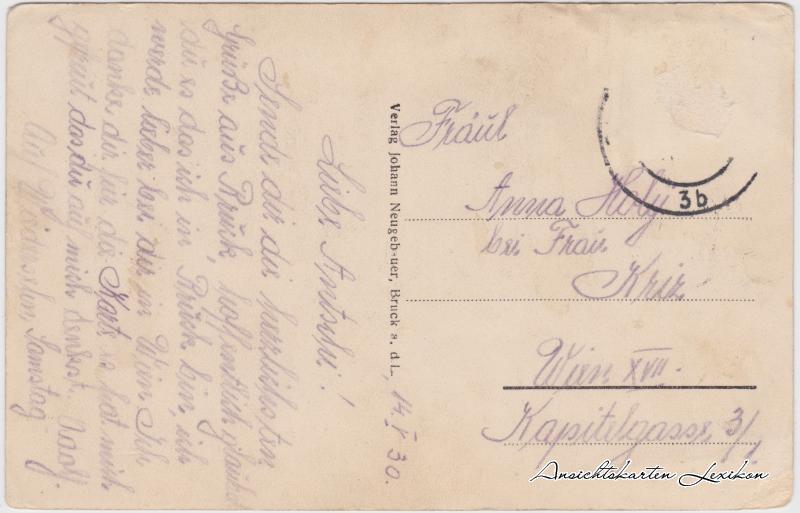 Liebe Antschi!
Sende dir die herzlichsten
Grüße aus Bruck, hoffentlich glaubst
du es das ich in Bruck bin, ich
werde lieber bei dir in Wien Ich
danke dir für die Karte es hat mich
gefreut das du auf mich denkst.
Auf Wiedersehn Samstag
Verlag Johann Neugeb-uer, Bruck a. d. L.
14. V. 30.
Fräul
Anna Holy
bei Frau
Kriz
Wien XVII.
Kapitelgasse 3/1
3b
Ansichtskarten Lexikon